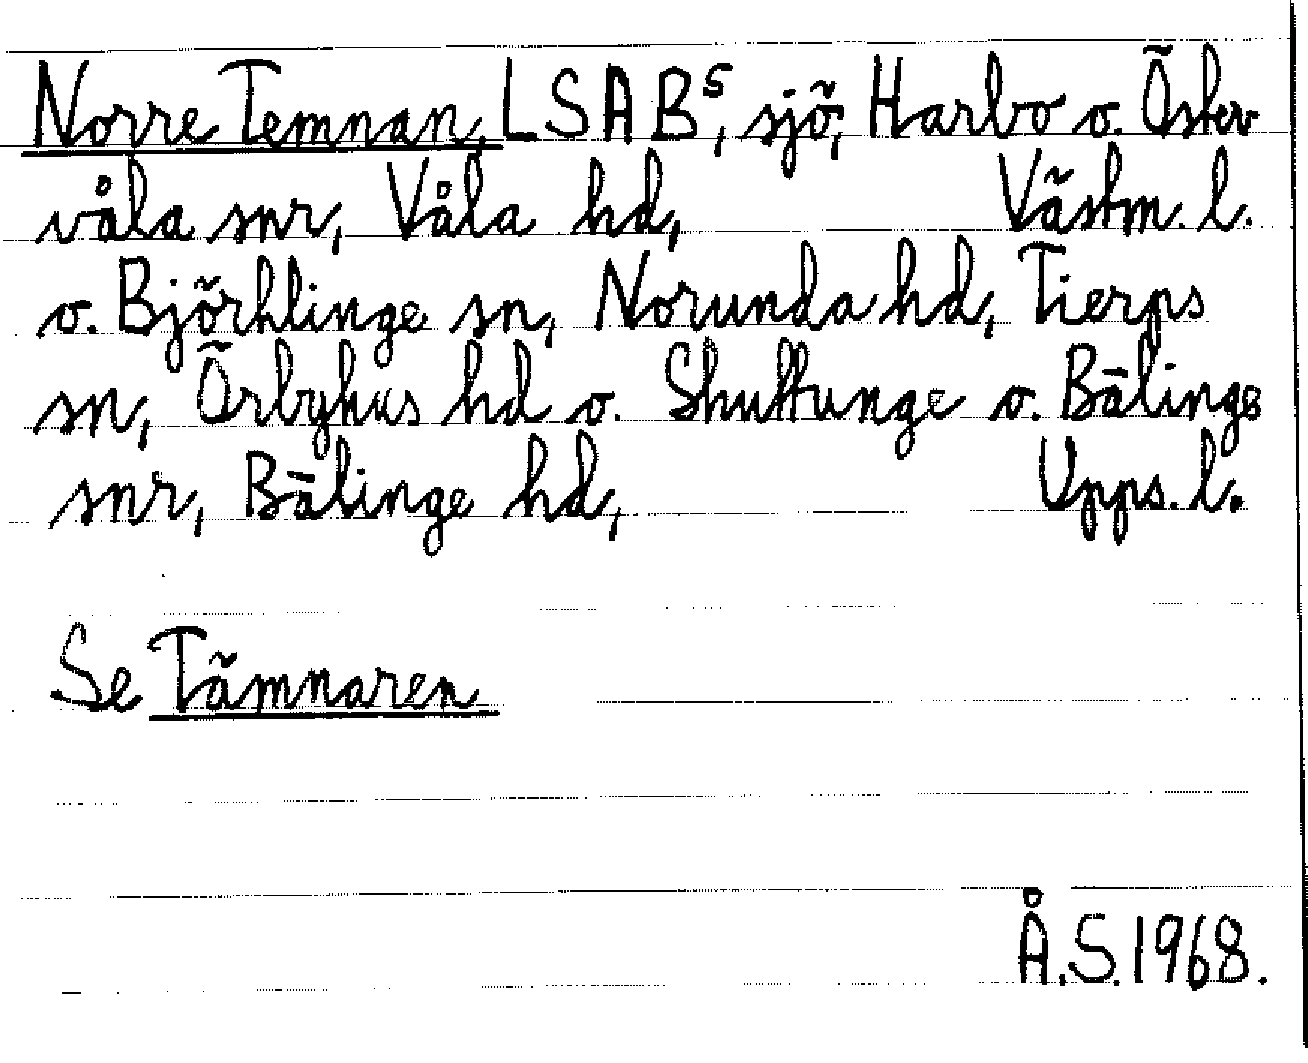 Norre Temnan, LSABs, sjö, Harbo o. Öster
våla snr, Våla hd, Västm. l.
o. Björklinge sn, Norunda hd, Tierps
sn, Örbyhus hd o. Skuttunge o. Bälinge
snr, Bälinge hd, Upps. l.
Se Tämnaren
Å.S. 1968.